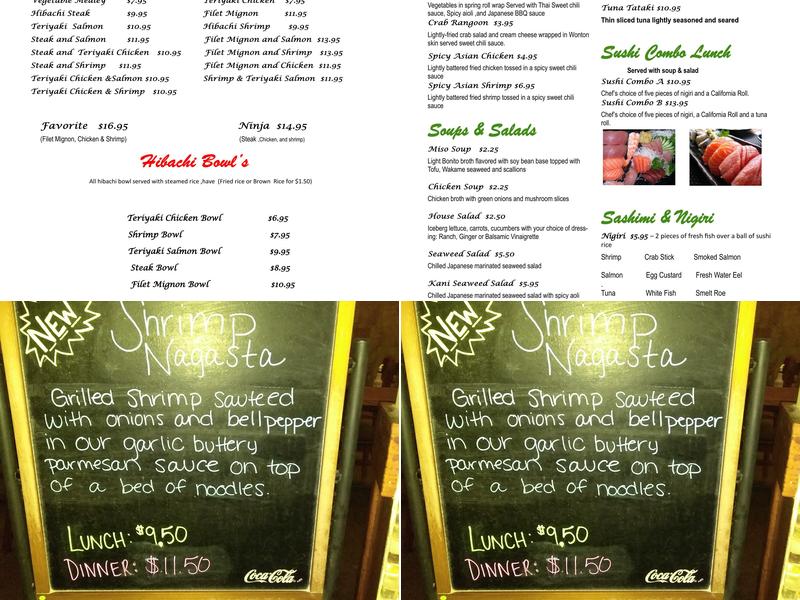 Vegetable Medley $7.95
Hibachi Steak $9.95
Teriyaki Salmon $10.95
Steak and Salmon $11.95
Steak and Teriyaki Chicken $10.95
Steak and Shrimp $11.95
Teriyaki Chicken &Salmon $10.95
Teriyaki Chicken & Shrimp $10.95
Filet Mignon $11.95
Hibachi Shrimp $9.95
Filet Mignon and Salmon $13.95
Filet Mignon and Shrimp $13.95
Filet Mignon and Chicken $11.95
Shrimp & Teriyaki Salmon $11.95
Favorite $16.95
(Filet Mignon, Chicken & Shrimp)
Ninja $14.95
(Steak ,Chicken, and shrimp)
Hibachi Bowl's
All hibachi bowl served with steamed rice ,have (Fried rice or Brown Rice for $1.50)
Teriyaki Chicken Bowl $6.95
Shrimp Bowl $7.95
Teriyaki Salmon Bowl $9.95
Steak Bowl $8.95
Filet Mignon Bowl $10.95
Vegetables in spring roll wrap Served with Thai Sweet chili
sauce, Spicy aioli ,and Japanese BBQ sauce
Crab Rangoon $3.95
Lightly-fried crab salad and cream cheese wrapped in Wonton
skin served sweet chili sauce.
Spicy Asian Chicken $4.95
Lightly battered fried chicken tossed in a spicy sweet chili
sauce
Spicy Asian Shrimp $6.95
Lightly battered fried shrimp tossed in a spicy sweet chili
sauce
Soups & Salads
Miso Soup $2.25
Light Bonito broth flavored with soy bean base topped with
Tofu, Wakame seaweed and scallions
Chicken Soup $2.25
Chicken broth with green onions and mushroom slices
House Salad $2.50
Iceberg lettuce, carrots, cucumbers with your choice of dress-
ing: Ranch, Ginger or Balsamic Vinaigrette
Seaweed Salad $5.50
Chilled Japanese marinated seaweed salad
Kani Seaweed Salad $5.95
Chilled Japanese marinated seaweed salad with spicy aoli
Tuna Tataki $10.95
Thin sliced tuna lightly seasoned and seared
Sushi Combo Lunch
Served with soup & salad
Sushi Combo A $10.95
Chef's choice of five pieces of nigiri and a California Roll.
Sushi Combo B $13.95
Chef's choice of five pieces of nigiri, a California Roll and a tuna
roll.
Sashimi & Nigiri
Nigiri $5.95 – 2 pieces of fresh fish over a ball of sushi
rice
Shrimp Crab Stick Smoked Salmon
Salmon Egg Custard Fresh Water Eel
Tuna White Fish Smelt Roe
NEW
Shrimp
Nagasta
Grilled Shrimp sauteed
with onions and bellpepper
in our garlic buttery
parmesan sauce on top
of a bed of noodles.
LUNCH: $9.50
DINNER: $11.50
Coca-Cola
NEW
Shrimp
Nagasta
Grilled Shrimp sauteed
with onions and bellpepper
in our garlic buttery
parmesan sauce on top
of a bed of noodles.
LUNCH: $9.50
DINNER: $11.50
Coca-Cola